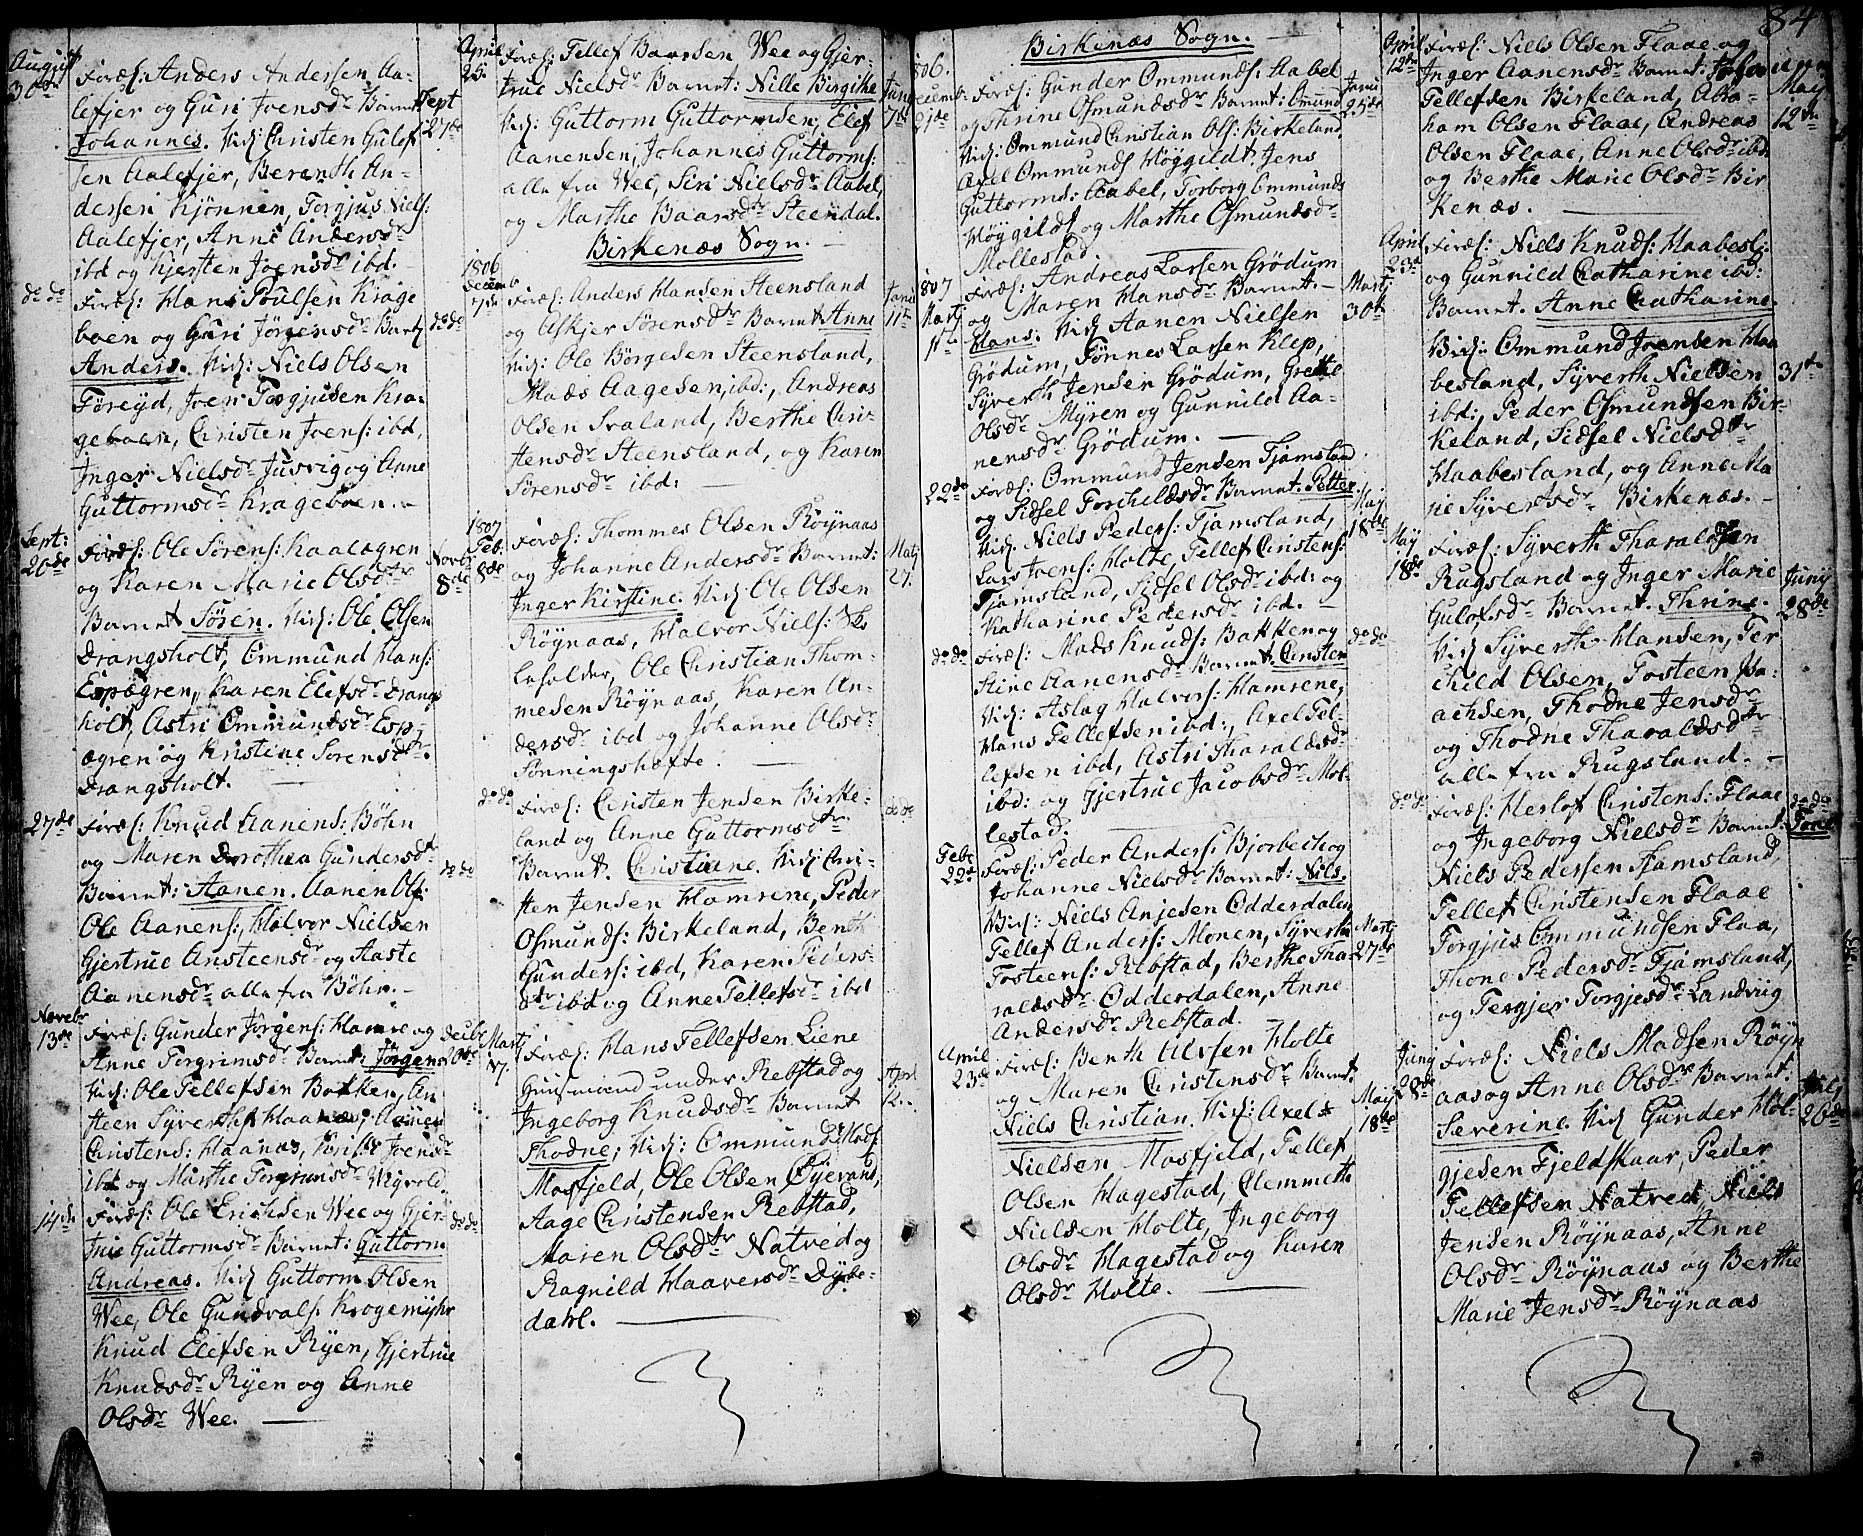 84
August
30te
Foræl: Anders Andersen Aa-
lefjer og Guri Joensdr Barnet
Johannes. Vid: Christen Gulof
sen Aalefjer, Berenth An-
dersen Kjönnen, Torgjus Niels:
Aalefjer, Anne Andersdr
ibd og Kjersten Joensdr ibd.
Sept
27de
do do
Foræl: Hans Poulsen Krage
boen og Guri Jörgensdr Barn
Anders. Vid: Niels Olsen
Föreÿd, Joen Torgjusen Kra-
geboen, Christen Joens: ibd,
Inger Nielsdr Jusvig og Anne
Guttormsdr Krageboen. -
do do
Sept:
20de
Foræl: Ole Sörens: Kaalögren
og Karen Marie Olsdtr
Barnet Sören. Vid: Ole Olsen
Drangsholt, Ommund Hans:
Espögren, Karen Elefsdr Drangs
holt, Astri Ommundsdr Esp-
ögren og Kristine Sörensdtr
Drangsholt.
Novbr
8de
27de
Foræl: Knud Aanens: Böhn
og Maren Dorothea Gundersdr
Barnet: Aanen. Aanen Ols:
Ole Aanens:, Halvor Nielsen
Gjertrue Ansteensdr og Aaste
Aanensdr alle fra Böhn. -
do do
Novbr
13de
Foræl: Gunder Jörgens: Hamre og
Anne Torgrimsdr Barnet: Jörgen
Vid: Ole Tellefsen Bakken, An
steen Syvertsen Haanæs, Aanen
Christens: Haanæs, Joensdr
ibd og Marthe Torgrimsdr Vigvold.
14de
Foræl: Ole Erichsen Wee og Gjer-
true Guttormsdr Barnet: Guttorm
Andreas. Vid: Guttorm Olsen
Wee, Ole Gundvals: Krogemyhr
Knud Elefsen Ryen, Gjertrue
Knudsdr Ryen og Anne
Olsdr Wee.
do do
April
26.
Foræl: Tellef Baarsen Wee og Gjer-
true Nielsdr Barnet: Nille Birgithe
Vid: Guttorm Guttormsen, Elef
Aanensen, Johannes Guttorms:
alle fra Wee, Siri Nielsdr Aabel,
og Marthe Baarsdr Steendal.
Juny
7de
Birkenæs Sogn.
1806
Decemb
7de
Foræl: Anders Hansen Steensland
og Askjer Sörensdtr Barnet Anne
Vid: Ole Börgesen Steensland,
Mads Aagesen, ibd:, Andreas
Olsen Svaland, Berthe Chri-
stensdr Steensland, og Karen
Sörensdr ibd:
Janu
11te
1807
Feb:
8de
Foræl: Thommes Olsen Röÿnaas
og Johanne Andersdr Barnet:
Inger Kirstine. Vid: Ole Olsen
Röynaas, Halvor Niels:
Leholder, Ole Christian Thom-
mesen Röynaas, Karen An-
dersdr ibd og Johanne Olsdr
Sönningshefte.
Martj
27.
do do
Foræl: Christen Jensen Birke-
land og Anne Guttormsdtr
Barnet. Christiane. Vid: Chri-
sten Jensen Hamrene, Peder
Osmunds: Birkeland, Benth
Gunders: ibd, Karen Peders-
dtr ibd og Anne Tellefsdr ibd
do do
Martj
17.
Foræl: Hans Tellefsen Liene
Huusmand under Rebstad og
Ingeborg Knudsdr Barnet
Thodne; Vid: Ommund Mads:
Mosfjeld, Ole Olsen Öÿevand,
Aage Christensen Rebstad,
Maren Olsdtr Natved og
Ragnild Haaversdr Dÿbe-
dahl.
Apri
12.
Birkenæs Sogn.
1806.
Decemb
21de
Foræl: Gunder Ommunds: Aabel
og Thrine Osmundsdr Barnet: Ommund
Vid: Ommund Christian Ols: Birkeland,
Axel Ommunds Höygildt, Jens
Guttorms: Aabel, Torborg Ommundsdr
Höygildt og Marthe Osmundsdr
Mollestad.
Janu
25de
1807
Martj
1te
Foræl: Andreas Larsen Grödum
og Maren Hansdr Barnet: -
Hans: Vid: Aanen Nielsen
Grödum, Tönnes Larsen Klep,
Syverth Jensen Grödum, Grethe
Olsdr Mÿren og Gunnild Aa-
nensdr Grödum.
Martj
30te
22de
Foræl: Ommund Jensen Tjamsland
og Sidsel Torchildsdr Barnet. Petter
Vid: Niels Peders: Tjamsland,
Lars Joens: Holte, Tellef Christens:
Tjamsland, Sidsel Olsdr ibd: og
Katharine Pedersdr ibd.
Maj
18de
do do
Foræl: Mads Knuds: Bakken og
Stine Aanensdr Barnet. Christen
Vid: Aslag Halvors: Hamrene,
Hans Tellefsen ibd:, Axel Tel-
lefsen ibd, Astri Tharaldsdr
ibd: og Gjertrue Jacobsdr Mol-
lestad.
do do
Febr
22de
Foræl: Peder Anders: Bjorbech og
Johanne Nielsdr Barnet: Nils.
Vid: Niels Anjesen Odderdalen,
Tellef Anders: Monen, Syverth
Tosteens: Rebstad, Berthe Tha-
raldsdr Odderdalen, Anne
Andersdr Rebstad.
Martj
27de
April
23de
Foræl: Benth Alvsen Holte
og Maren Christensdr Barnet.
Niels Christian. Vid: Axel
Nielsen Mosfjeld, Tellef
Olsen Hagestad, Clemmeth
Nielsen Holte, Ingeborg
Olsdr Hagestad og Karen
Olsdr Holte.
Maij
18de
April
12te
Foræl: Niels Olsen Flaae og
Inger Aanensdr Barnet:
Tellefsen Birkeland, Abra-
ham Olsen Flaae, Andreas
Olsen Flaae, Anne Olsdr ibd
og Berthe Marie Olsdr Bir
kenæs.
May
12te
April
23de
Foræl: Niels Knuds: Haabesl:
og Gunnild Catharine ibd:
Barnet. Anne Chatharine
Vid: Ommund Joensen Haa
besland, Syverth Nielsen
ibd:, Peder Osmundsen Bir-
keland, Sidsel Nielsdtr
Haabesland, og Anne Ma
rie Syvertsdr Birkenæs. -
31te
May
18de
Foræl: Syverth Tharaldsen
Rugsland og Inger Marie
Gulofsdr Barnet. Thrine.
Vid: Syverth Hansen, Ter
child Olsen, Tosteen Isa-
achsen, Thodne Jensdr
og Thodne Tharaldsdtr
alle fra Rugsland. -
Junij
28de
do do
Foræl: Herlof Christens: Flaae
og Ingeborg Nielsdr Barnet: Tone
Niels Pedersen Tjamsland,
Tellef Christensen Flaae
Torgjus Ommundsen Flaa,
Thone Pedersdr Tjamsland,
og Tergjer Torgjesdr Landvig
do do
Junij
28de
Foræl: Niels Madsen Röÿn
aas og Anne Olsdr Barnet.
Severine. Vid: Gunder Hol-
gjesen Fjeldskaar, Peder
Tellefsen Natved, Niels
Jensen Röynaas, Anne
Olsdr Röynaas og Berthe
Marie Jensdr Röynaas
Julij
26de